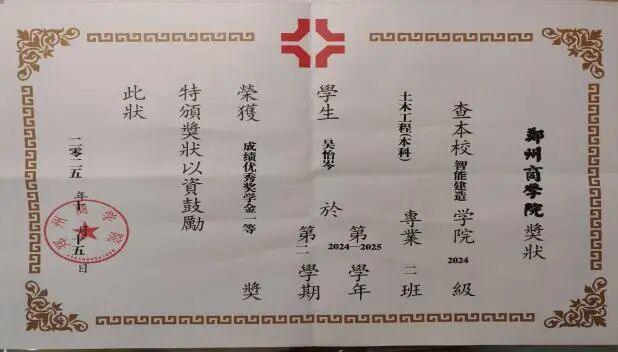 鄭州商学院獎狀
查本校智能建造學院2024級
土木工程(本科)專業二班
學生吴怡岑於第2024—2025學年
第二學期
榮獲成绩优秀奖学金一等獎
特頒獎狀以資鼓勵
此狀
二零二五年十月十五日